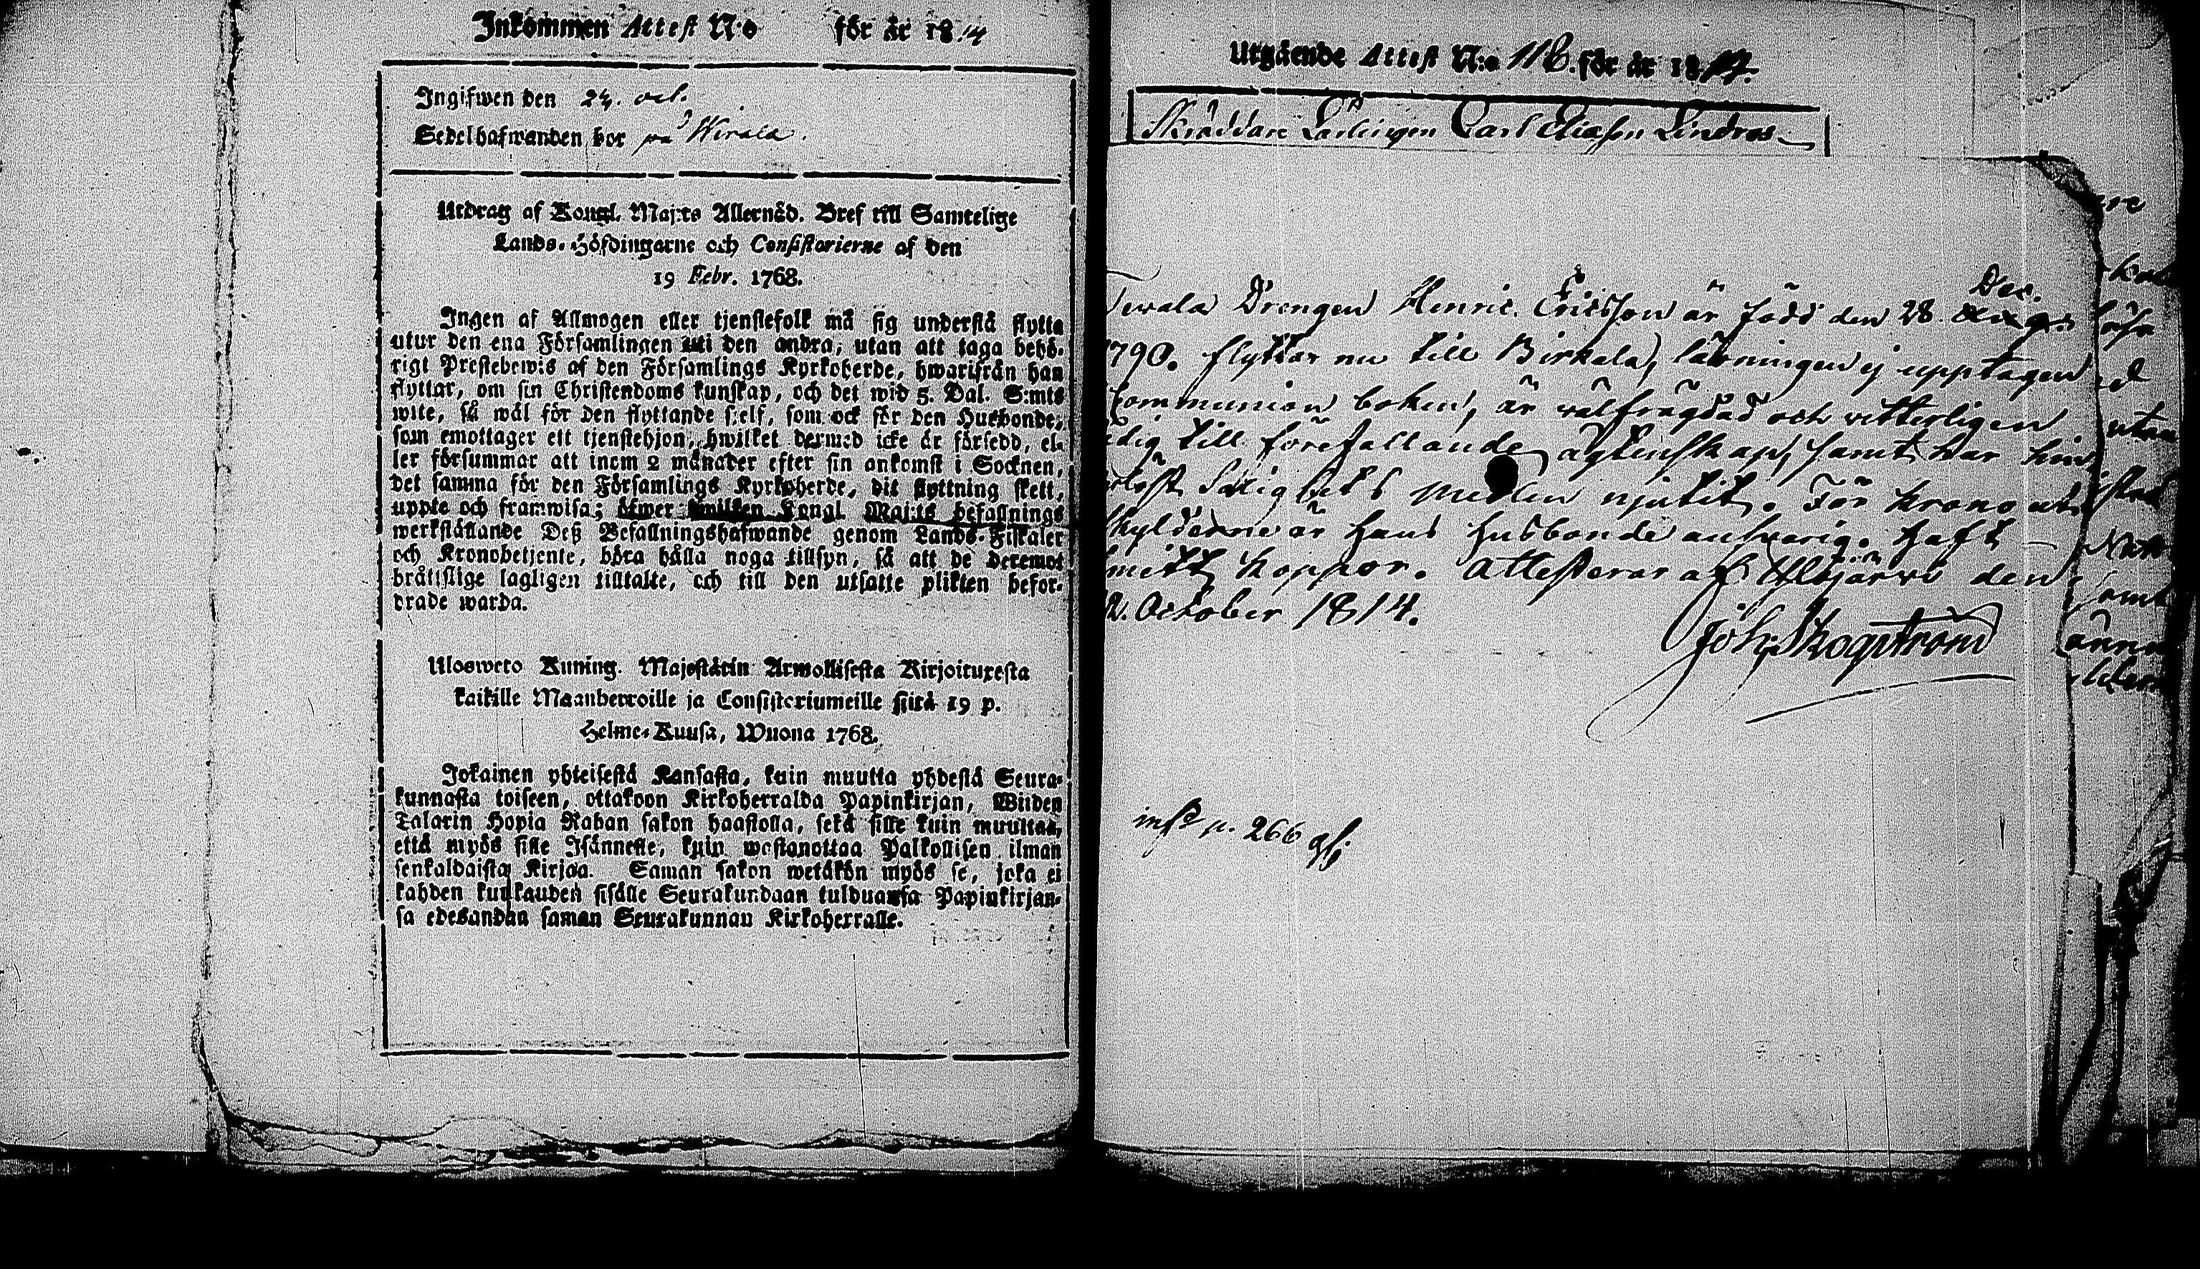 Inkommen Attest N:o för år 1814
Ingifwen den 24. oct.
Sedelhafwanden bor på Wirala.
Utdrag af Kongl. Maj:ts Allernåd. Bref till Samtelige
Lands-Höfdingarne och Consistorierne af den
19 Febr. 1768.
Ingen af Allmogen eller tjenstefolk må sig understå flytta
utur den ena Församlingen uti den andra, utan att taga behö-
rigt Prestebewis af den Församlings Kyrkoherde, hwarifrån han
flyttar, om sin Christendoms kunskap, och det wid 5. Dal. S:mts
wite, så wäl för den flyttande sjelf, som ock för den Husbonde,
som emottager ett tjenstehjon, hwilket dermed icke är försedd, el-
ler försummar att inom 2 månader efter sin ankomst i Socknen,
det samma för den Församlings Kyrkoherde, dit flyttning skett,
uppte och framwisa; öfwer hwilken Kongl. Maj:ts befallnings
werkställande Deß Befallningshafwande genom Lands-Fiskaler
och Kronobetjente, böra hålla noga tillsyn, så att de deremot
bråttslige lagligen tilltalte, och till den utsatte plikten befor-
drade warda.
Ulosweto Kuning. Majestätin Armollisesta Kirjoituxesta
kaikille Maanherroille ja Consistoriumeille siitä 19 p.
Helme-Kuusa, Wuona 1768.
Jokainen yhteisestä Kansasta, kuin muutta yhdestä Seura-
kunnasta toiseen, ottakoon Kirkoherralda Papinkirjan, Wiiden
Talarin Hopia Rahan sakon haastolla, sekä sille kuin muuttaa,
että myös sille Isännelle, kuin wastanottaa Palkollisen ilman
senkaldaista Kirjaa. Saman sakon wetäkön myös se, joka ei
kahden kuukauden sisälle Seurakundaan tulduansa Papinkirjan-
sa edesandan saman Seurakunnan Kirkoherralle.
Utgående Attest N:o 118. för år 1817.
Skräddare Lärlingen Carl Eliasson Lindros
Drengen Henric Ericsson är född den 28. Dec.
1790. flyttar nu till Birkala, läsningen ej upptagen
Communion boken, är wälfrägdad och witterligen
till förefallande ägtenskap, samt har
Salighets medlen njutit. För krono ut
skylderne är hans husbonde answarig. Haft
koppor. Attesterar af den
2. October 1814.
Joh: Skogström
inf? p. 266